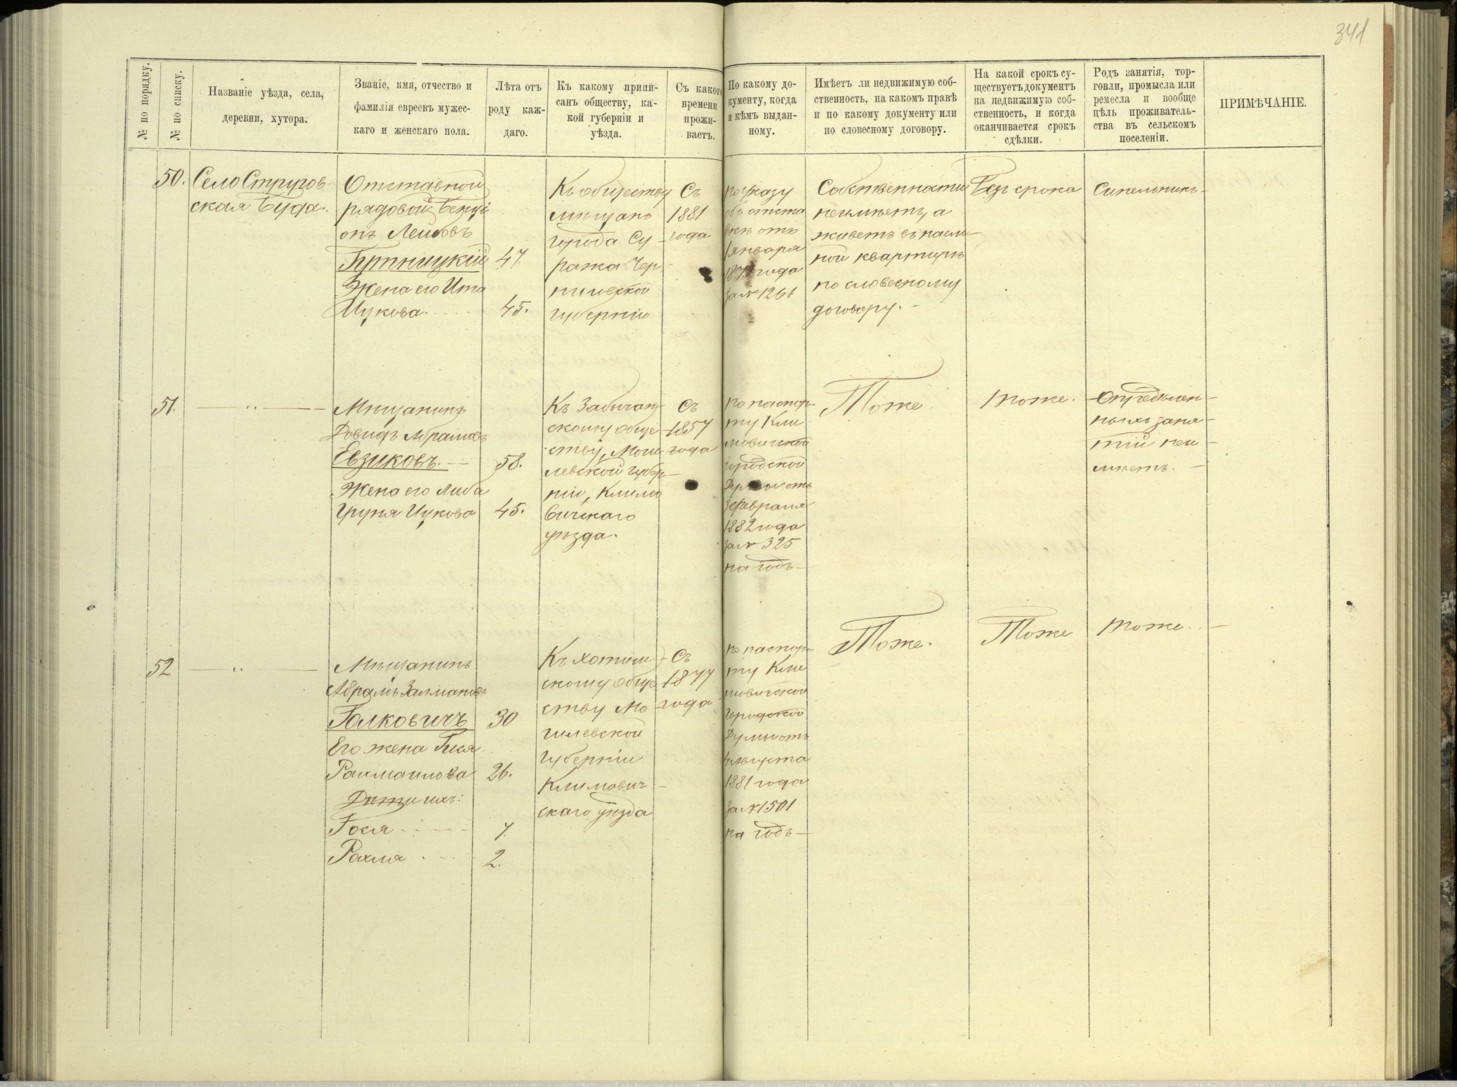 341
№ по порядку.
№ по списку.
Названіе уѣзда, села,
деревни, хутора.
Званіе, имя, отчество и
фамилія евреевъ мужес-
каго и женскаго пола.
Лѣта отъ
роду каж-
даго.
Къ какому припи-
санъ обществу, ка-
кой губерніи и
уѣзда.
Съ какого
времени
прожи-
ваетъ.
По какому до-
кументу, когда
и кѣмъ выдан-
ному.
Имѣетъ ли недвижимую соб-
ственность, на какомъ правѣ
и по какому документу или
по словесному договору.
На какой срокъ су-
ществуетъ документъ
на недвижимую соб-
ственность, и когда
оканчивается срокъ
сдѣлки.
Родъ занятія, тор-
говли, промысла или
ремесла и вообще
цѣль проживатель-
ства въ сельскомъ
поселеніи.
ПРИМѢЧАНІЕ.
50.
Село Стругов-
ская Буда.
Отставной
рядовой
Лейбовъ
47
Жена его Ита
Ицкова.
45.
Къ обществу
мѣщанъ
города Су-
ража Чер-
ниговской
губерніи
Съ
1881
года
По указу
объ отста
вкѣ отъ
Января
года
за № 1261
Собственности
неимѣетъ, а
живетъ въ наем-
ной квартирѣ
по словесному
договору. -
Безъ срока
51.
— " —
Мѣщанинъ
Довидъ Абрамовъ
Евзиковъ. —
58.
Жена его Либа
Груня Ицкова
45.
Къ Забычан-
скому обще-
ству, Моги-
левской губер-
ніи, Климо
вичскаго
уѣзда.
Съ
1857
года
По паспор-
ту Кли-
мовичской
городской
Думы отъ
Февраля
1882 года
за № 325
на годъ —
Тоже
тоже.
Опредѣлен-
ныхъ заня-
тій неи-
мѣетъ. -
52
— " —
Мѣщанинъ
Абрамъ Залмановъ
Галковичъ
30
Его жена Гися
Рахмаилова
26.
Дѣти ихъ:
Гося
7.
Рохля
2.
Къ Хотим-
скому обще-
ству Мо-
гилевской
губерніи
Климович-
скаго уѣзда
Съ
1877
года
По паспор-
ту Кли-
мовичской
городской
Думы отъ
Августа
1881 года
за № 1501
на годъ —
Тоже.
Тоже
тоже. —